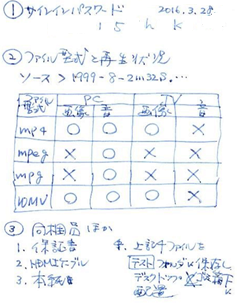 ① サイレイパスワード 2016.3.28
15hk
② ファイル型式と再生状況
ソース > 1999-8-2m32g....
ファイル型式 PC TV
画像 音 画像 音
mp4 ○ ○ ○ ×
mpeg × ○ × ×
mpg × ○ × ×
WMV ○ ○ ○ ×
③ 同梱品 ほか
1. 保証書
2. HDMIケーブル
3. 本紙
4. 上記4ファイルを
テストフォルダに保存し
デスクトップ
配置